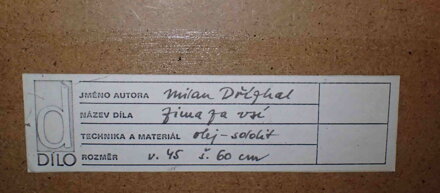 JMÉNO AUTORA Milan Dřízhal
NÁZEV DÍLA Zima za vsí
TECHNIKA A MATERIÁL olej-sololit
d DÍLO ROZMĚR v. 45 š. 60 cm